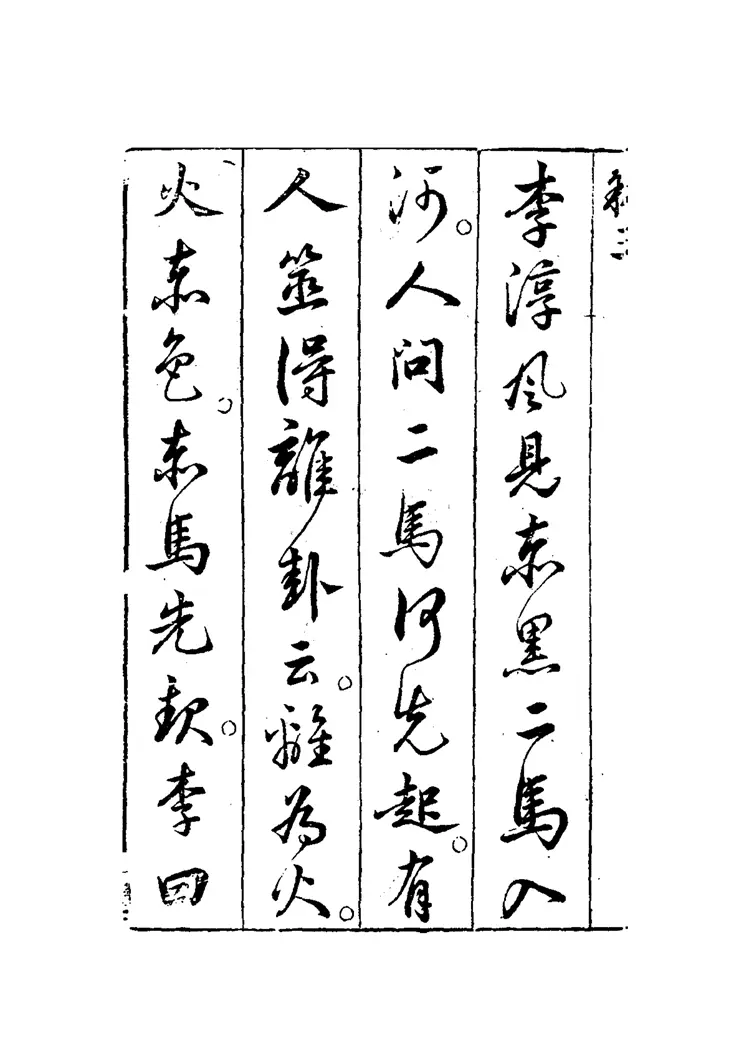 李淳風見赤黑二馬入
河。人問二馬何先起。有
人筮得離卦云。離為火。
火赤色。赤馬先。李曰